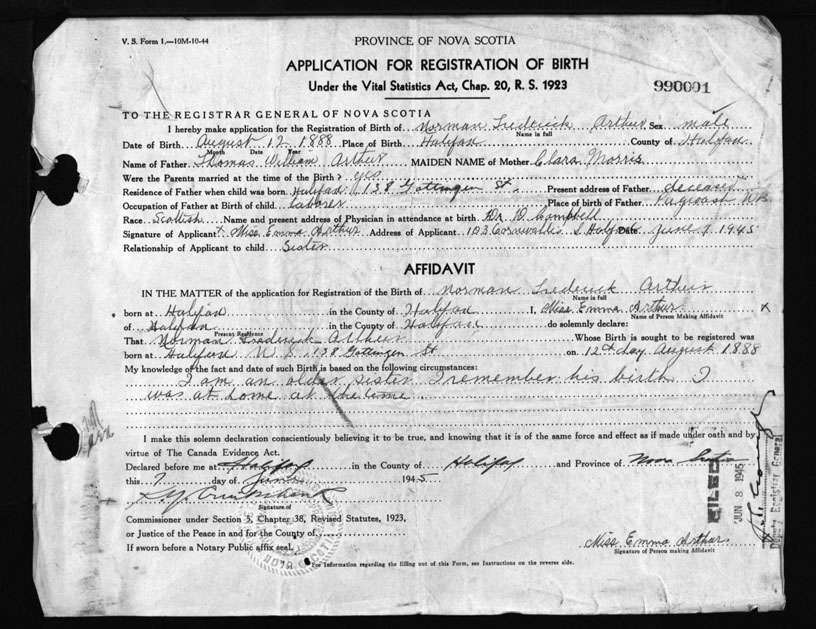 V. S. Form 1.—10M-10-44
PROVINCE OF NOVA SCOTIA
APPLICATION FOR REGISTRATION OF BIRTH
Under the Vital Statistics Act, Chap. 20, R. S. 1923
990001
TO THE REGISTRAR GENERAL OF NOVA SCOTIA
I hereby make application for the Registration of Birth of Norman Frederick Arthur Sex male
Name in full
Date of Birth August 12 1888 Place of Birth Halifax County of Halifax
Month Date Year
Name of Father Thomas William Arthur MAIDEN NAME of Mother Clara Morris
Were the Parents married at the time of the Birth? yes
Residence of Father when child was born Halifax 138 Gottingen St. Present address of Father deceased
Occupation of Father at Birth of child laborer Place of birth of Father
Race Scottish Name and present address of Physician in attendance at birth Dr D Campbell
Signature of Applicant x Miss Emma Arthur Address of Applicant 103 Cornwallis S Halifax Date June 7 1945
Relationship of Applicant to child Sister
AFFIDAVIT
IN THE MATTER of the application for Registration of the Birth of Norman Frederick Arthur
Name in full
born at Halifax in the County of Halifax I, Miss Emma Arthur x
Name of Person Making Affidavit
of Halifax in the County of Halifax do solemnly declare:
Present Residence
That Norman Frederick Arthur Whose Birth is sought to be registered was
born at Halifax N S. 138 Gottingen St on 12th day August 1888
My knowledge of the fact and date of such Birth is based on the following circumstances:
I am an older sister I remember his birth. I
was at home at the time.
I make this solemn declaration conscientiously believing it to be true, and knowing that it is of the same force and effect as if made under oath and by
virtue of The Canada Evidence Act.
Declared before me at Halifax in the County of Halifax and Province of Nova Scotia
this 7 day of June 1945
Signature of
Commissioner under Section 5, Chapter 38, Revised Statutes, 1923,
or Justice of the Peace in and for the County of
If sworn before a Notary Public affix seal.
Miss Emma Arthur
Signature of Person making Affidavit
For Information regarding the filling out of this Form, see Instructions on the reverse side.
FILED
JUN 8 1945
Deputy Registrar General